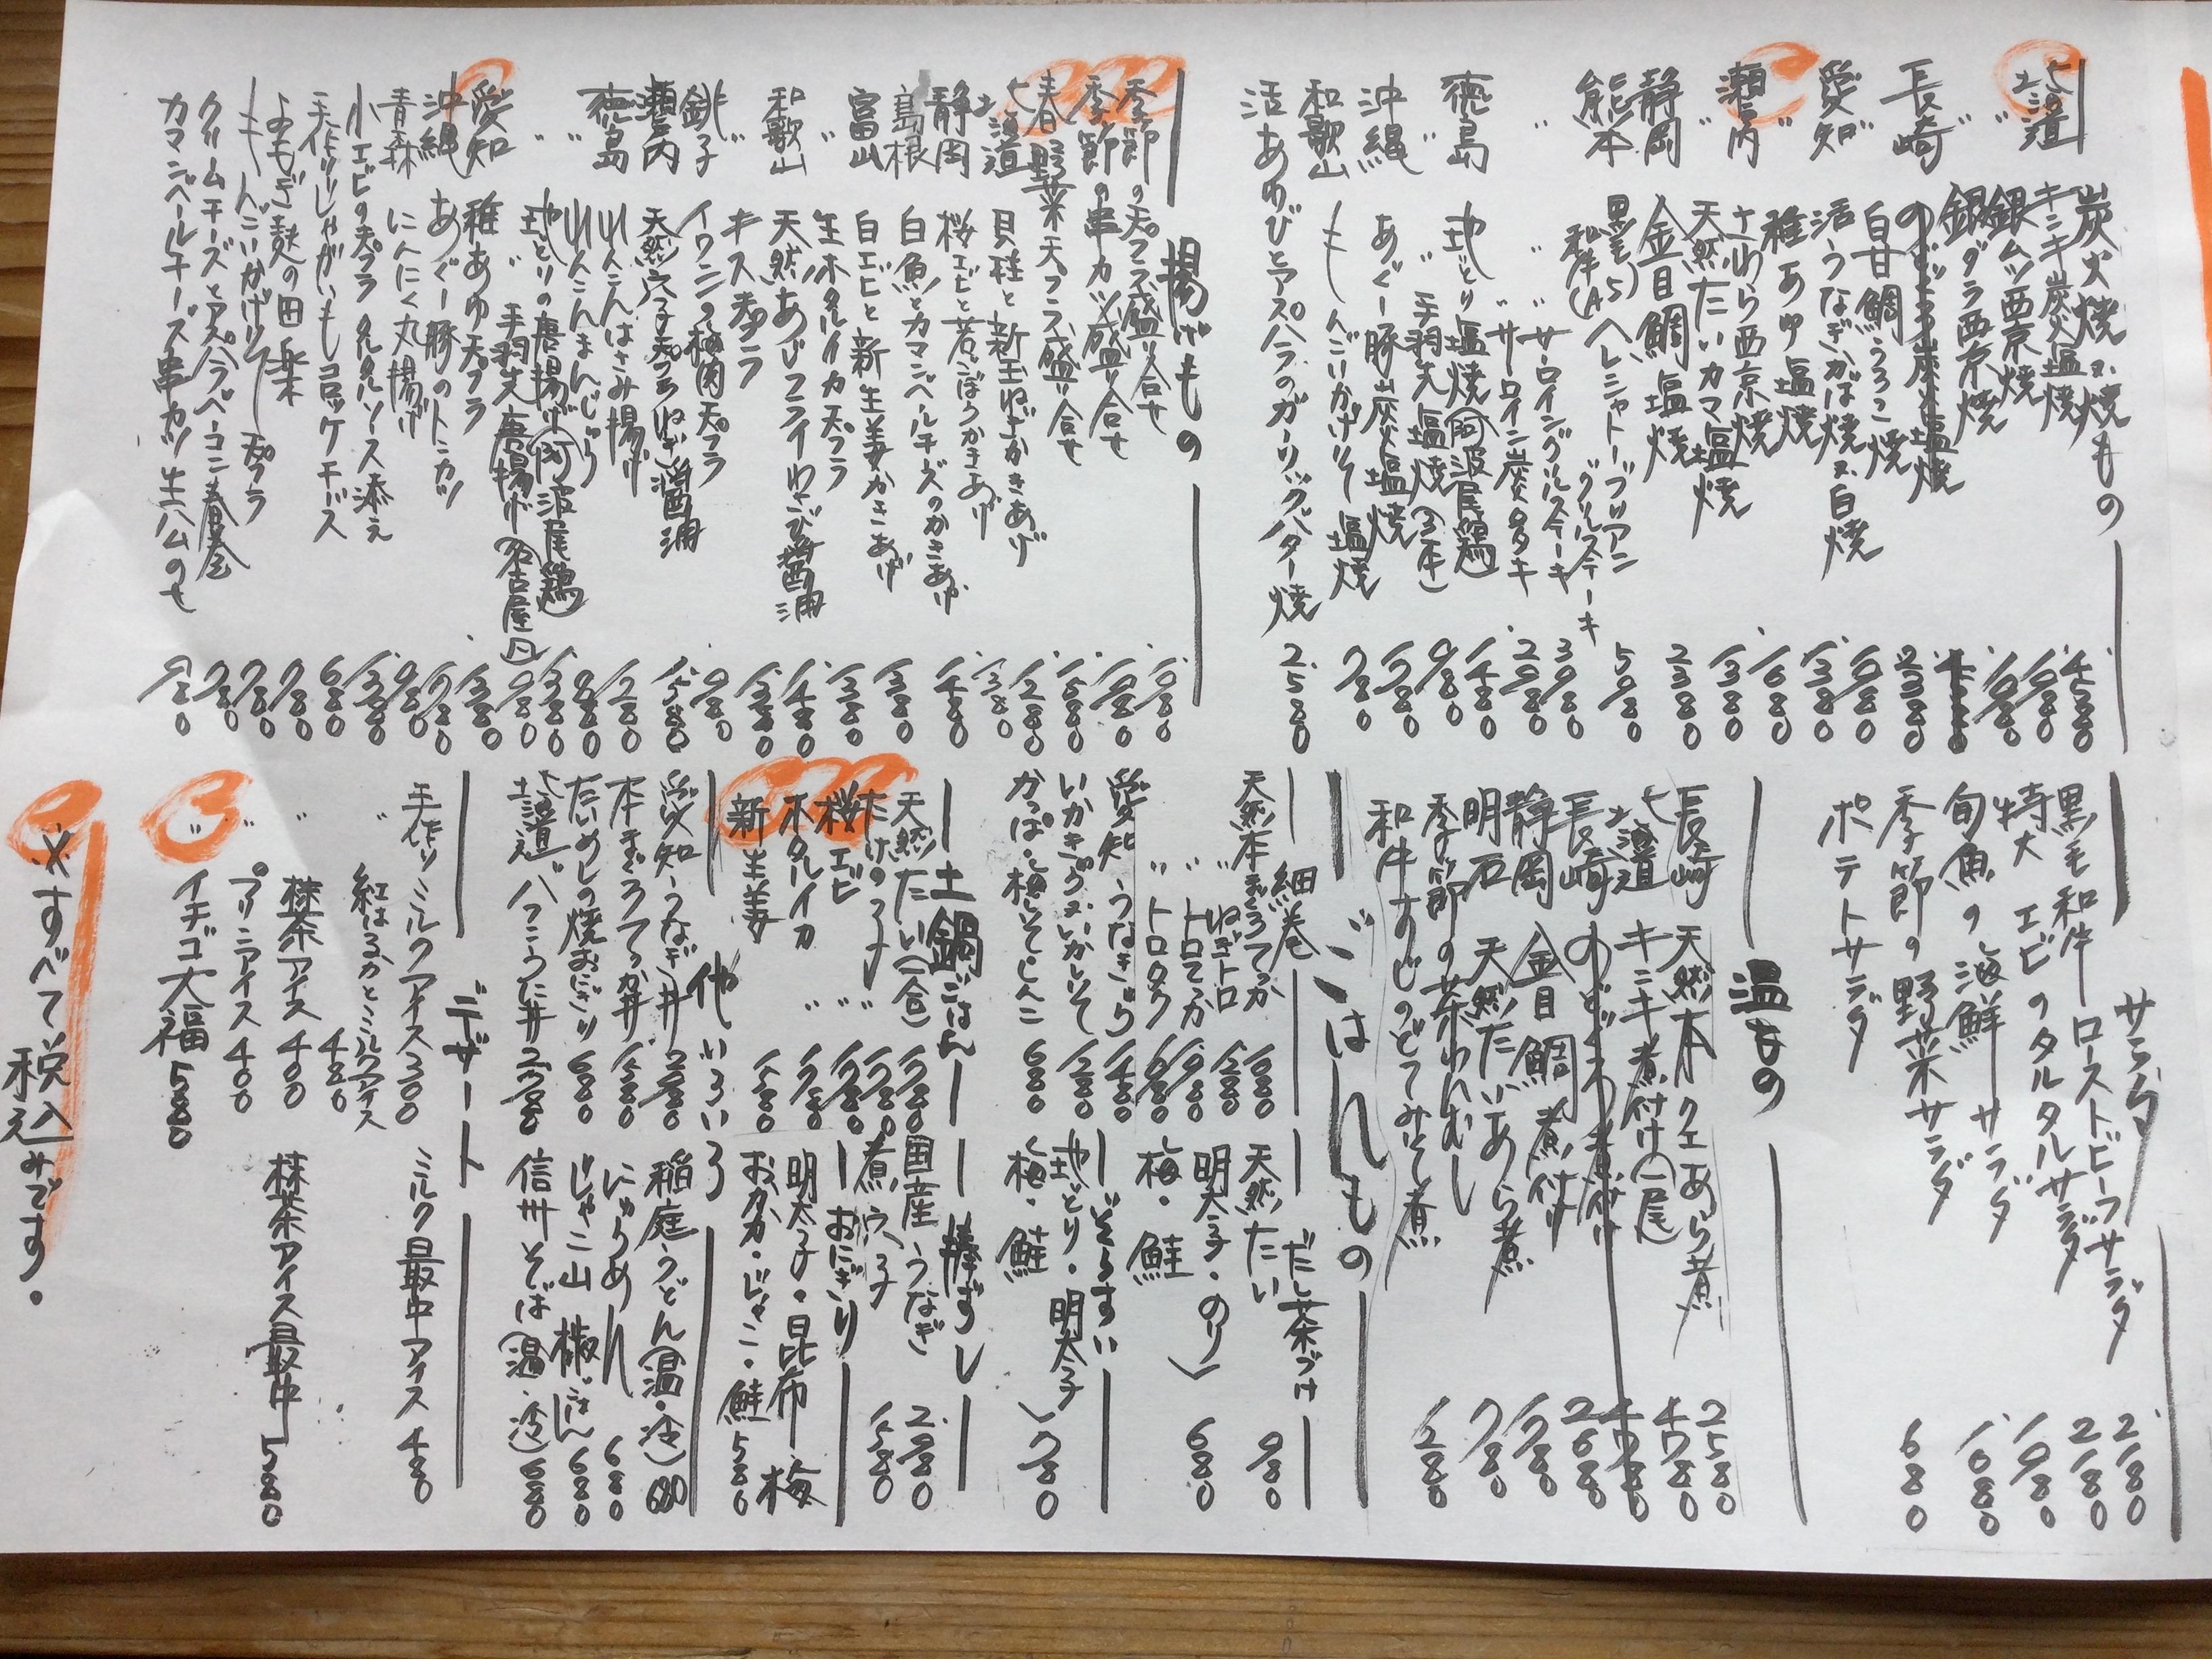 炭火焼又は焼もの
北海道 キンキ炭火塩焼 4580
〃 銀ムツ西京焼 1980
銀ダラ西京焼 1980
長崎 のどぐろ炭火塩焼
〃 白甘鯛うろこ焼 2380
愛知 活うなぎかば焼又は白焼
〃 稚あゆ塩焼 1380
瀬戸内 さわら西京焼 1680
〃 天然たいカマ塩焼 1380
静岡 金目鯛塩焼 2380
熊本 黒毛和牛(A5)ヘレシャトーブリアン
〃グリルステーキ 5980
〃 〃 サーロイングリルステーキ 3980
〃 〃 サーロイン炭タタキ 2980
徳島 地どり塩焼(阿波尾鶏) 1480
〃 〃 手羽先塩焼(3本) 980
沖縄 あぐー豚炭火塩焼 1780
和歌山 もんごいかげそ塩焼 780
活あわびとアスパラのガーリックバター焼 2580
揚げもの
季節の天プラ盛り合せ 1980
季節の串カツ盛り合せ 1980
春野菜天プラ盛り合せ 1580
北海道 貝柱と新玉ねぎかきあげ 1280
静岡 桜エビと若ごぼうかきあげ 1380
島根 白魚とカマンベールチーズのかきあげ 1480
富山 白エビと新生姜かきあげ 1380
〃 生ホタルイカ天プラ 1380
和歌山 天然あじフライわさび醤油 1480
〃 キス天プラ 1380
銚子 イワシの梅肉天プラ 980
瀬戸内 天然穴子天プラねぎ醤油 1580
徳島 れんこんはさみ揚げ 1280
〃 れんこんまんじゅう 980
〃 地どりの唐揚げ(阿波尾鶏) 1380
〃 手羽先唐揚げ(名古屋コーチン) 980
愛知 稚あゆ天プラ 1380
沖縄 あぐー豚のトンカツ 1780
青森 にんにく丸揚げ 980
小エビの天プラタルタルソース添え 1380
手作りじゃがいもコロッケチーズ 680
よもぎ麩の田楽 780
もんごいかげそ天プラ 780
クリームチーズとアスパラベーコン春巻 780
カマンベールチーズ串カツ生ハムのせ 980
サラダ
黒毛和牛ローストビーフサラダ 2180
特大エビのタルタルサラダ 2180
旬魚の海鮮サラダ 1980
季節の野菜サラダ 1080
ポテトサラダ 680
温もの
長崎 天然本クエあら煮 2580
北海道 キンキ煮付け(一尾) 4780
長崎 のどぐろ煮付け 4780
静岡 金目鯛煮付け 2680
明石 天然たいあら煮 1780
季節の茶わんむし 780
和牛すじのどてみそ煮 1280
ごはんもの
細巻
天然本まぐろてっか 1680
〃 ねぎトロ 1280
〃 トロてっか 1980
〃 トロタク 1680
愛知 うなきゅう 1480
いかきゅう又はいかしそ 1280
かっぱ・梅しそ・しんこ 680
だし茶づけ
天然たい 980
明太子・のり
梅・鮭 680
ぞうすい
地どり・明太子
梅・鮭 780
土鍋ごはん
天然たい(一合) 1780
たけのこ 〃 1780
桜エビ 〃 1780
ホタルイカ 〃 1780
新生姜 1580
棒ずし
国産うなぎ 2980
煮穴子 1580
おにぎり
明太子・昆布・梅
おかか・じゃこ・鮭 580
他いろいろ
愛知うなぎ丼 2980
本まぐろてっか丼 1580
たいめしの焼おにぎり 680
北海道バフンうに丼 2980
稲庭うどん(温・冷) 680
にゅうめん 680
じゃこ山椒ごはん 680
信州そば(温・冷) 680
デザート
手作りミルクアイス 300
〃 紅はるかとミルクアイス 480
〃 抹茶アイス 400
〃 プリンアイス 400
〃 イチゴ大福 580
ミルク最中アイス 480
抹茶アイス最中 580
※すべて税込みです。